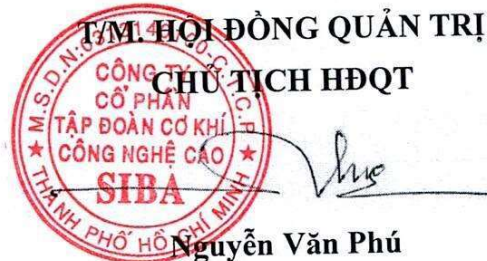 T/M. HỘI ĐỒNG QUẢN TRỊ
CHỦ TỊCH HĐQT
CÔNG TY
CỔ PHẦN
TẬP ĐOÀN CƠ KHÍ
CÔNG NGHỆ CAO
SIBA
THÀNH PHỐ HỒ CHÍ MINH
Nguyễn Văn Phú